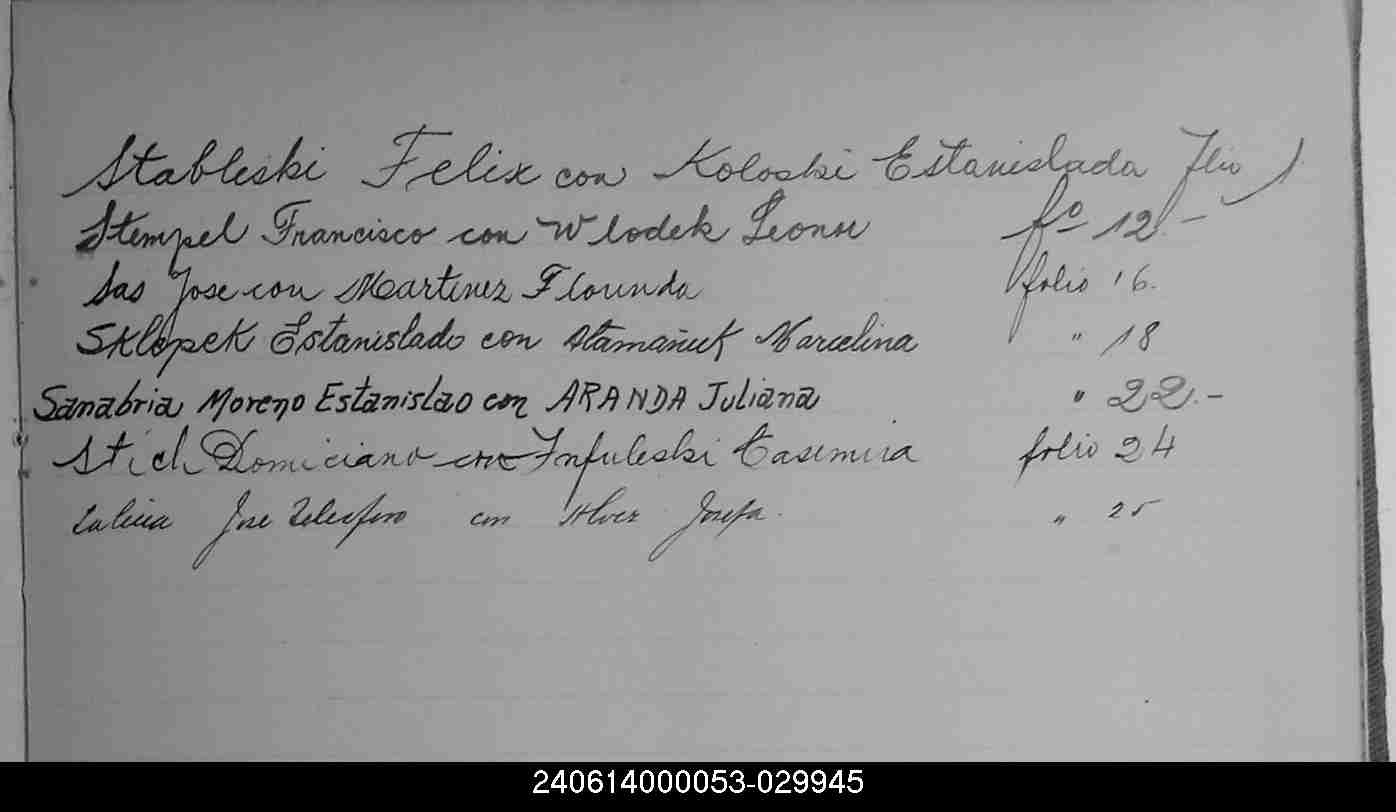 Stableski Felix con Koloski Estanislada Flio 1
Stempel Francisco con Wlodek Leonor fº 12.-
Sas Jose con Martinez Florinda folio 16.
Sklopek Estanislado con Atamañuk Marcelina " 18
Sanabria Moreno Estanislao con ARANDA Juliana " 22.-
Stich Domiciano con Infuleski Casimira folio 24
Jose Telesforo con Josefa. " 25
240614000053-029945